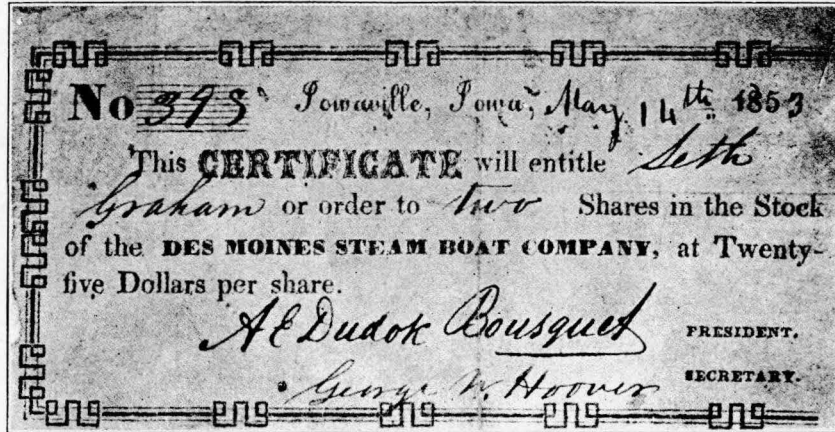 No 395 Iowaville, Iowa, May 14th 1853
This CERTIFICATE will entitle Seth
Graham or order to two Shares in the Stock
of the DES MOINES STEAM BOAT COMPANY, at Twenty-
five Dollars per share.
A E Dudok Bousquet PRESIDENT.
George W. Hoover SECRETARY.